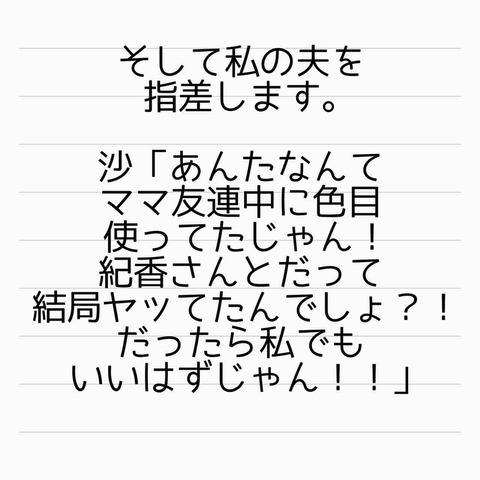 そして私の夫を
指差します。
沙「あんたなんて
ママ友連中に色目
使ってたじゃん！
紀香さんとだって
結局ヤッてたんでしょ？！
だったら私でも
いいはずじゃん！！」